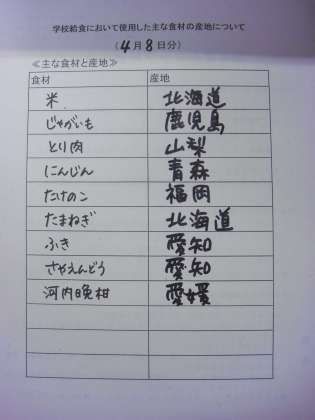 学校給食において使用した主な食材の産地について
(4月8日分)
≪主な食材と産地≫
食材 産地
米 北海道
じゃがいも 鹿児島
とり肉 山梨
にんじん 青森
たけのこ 福岡
たまねぎ 北海道
ふき 愛知
さやえんどう 愛知
河内晩柑 愛媛